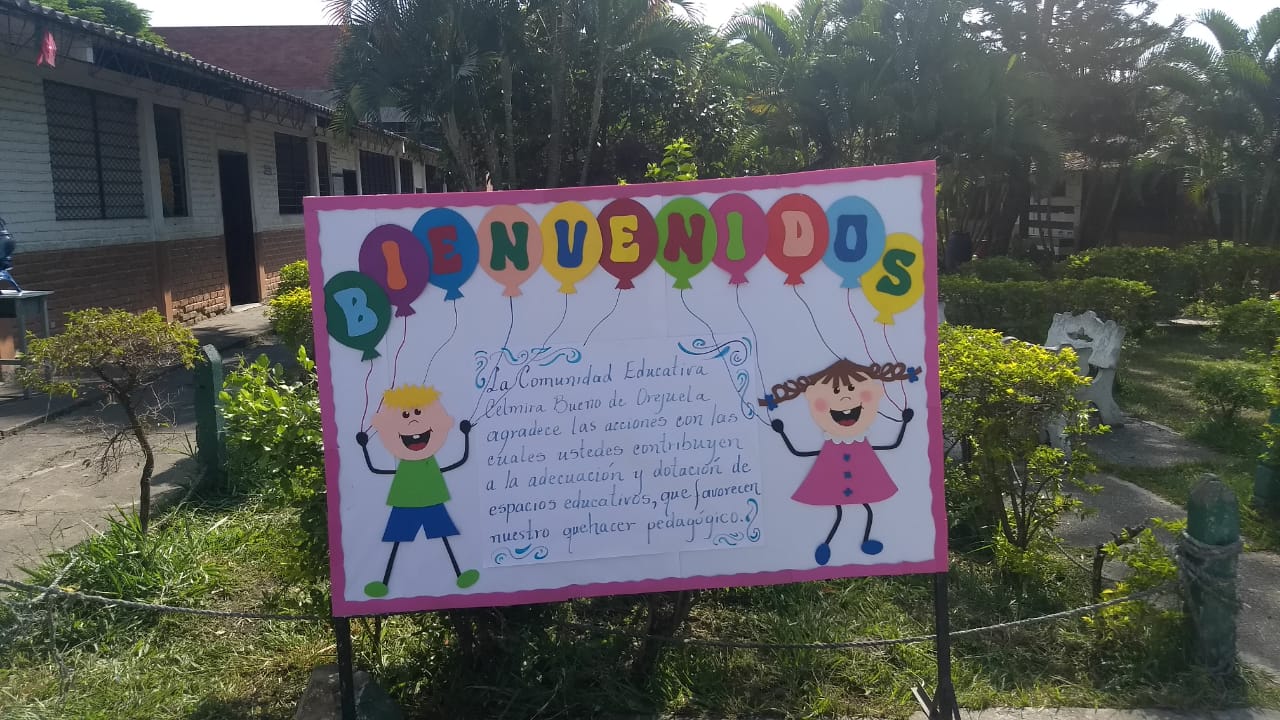 BIENVENIDOS
La Comunidad Educativa
Celmira Bueno de Orejuela
agradece las acciones con las
cuales ustedes contribuyen
a la adecuación y dotación de
espacios educativos, que favorecen
nuestro quehacer pedagógico.